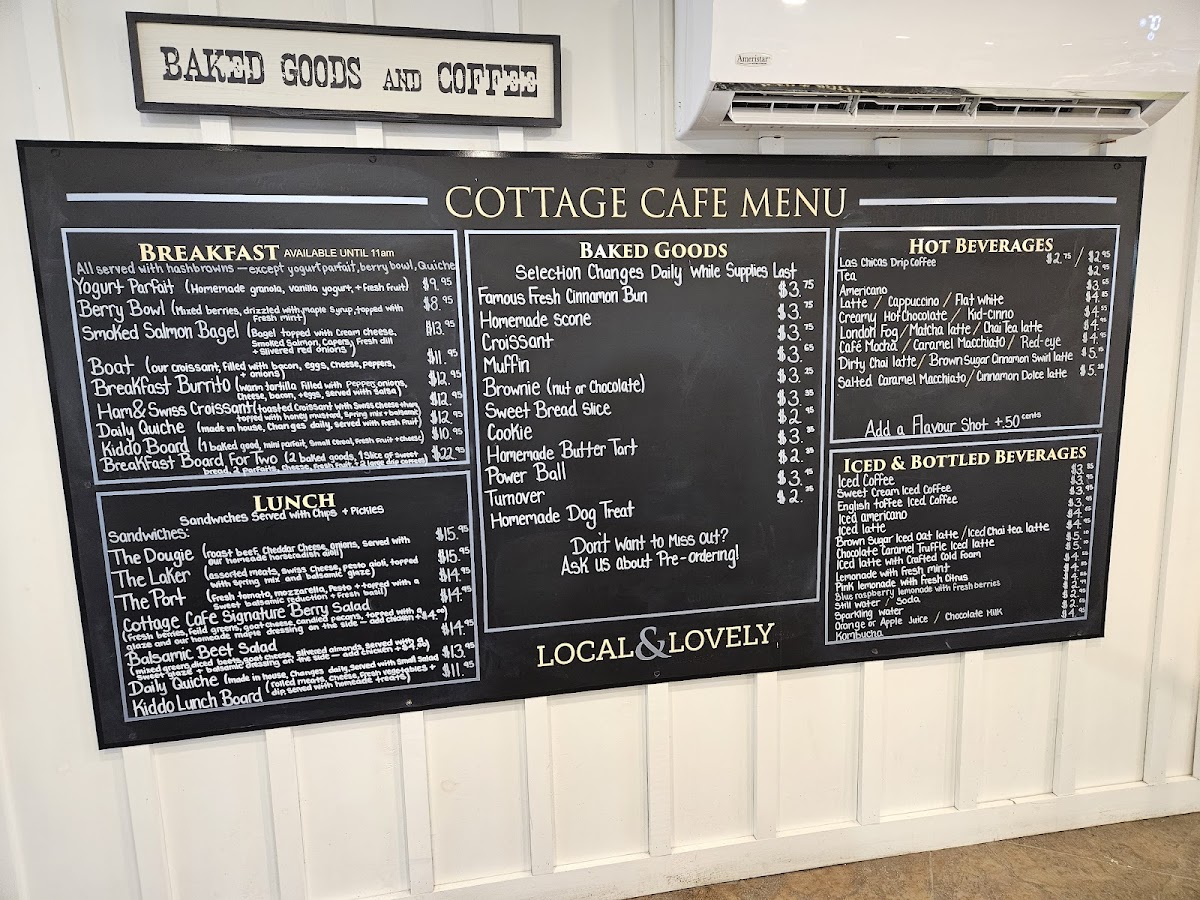 BAKED GOODS AND COFFEE
Ameristar
COTTAGE CAFE MENU
BREAKFAST AVAILABLE UNTIL 11am
All served with hashbrowns — except yogurt parfait, berry bowl, Quiche
Yogurt Parfait (Homemade granola, vanilla yogurt, + fresh fruit) $9.95
Berry Bowl (Mixed berries, drizzled with maple syrup, topped with $8.95
fresh mint)
Smoked Salmon Bagel (Bagel topped with cream cheese, $13.95
Smoked Salmon, Capers, Fresh dill
+ Slivered red onions)
Boat (our croissant, filled with bacon, eggs, cheese, peppers, $11.95
+ onions)
Breakfast Burrito (warm tortilla filled with peppers, onions, $12.95
Cheese, bacon, + eggs, served with Salsa)
Ham & Swiss Croissant (toasted Croissant with Swiss cheese + ham, $12.95
topped with honey mustard, Spring mix + balsamic)
Daily Quiche (made in house, Changes daily, served with Fresh Fruit) $12.95
Kiddo Board (1 baked good, mini parfait, Small Cereal, Fresh Fruit + cheese) $10.95
Breakfast Board For Two (2 baked goods, 1 Slice of Sweet $22.95
bread, 2 Parfaits, Cheese, Fresh Fruit + 2 large drip coffees)
LUNCH
Sandwiches Served with Chips + Pickles
Sandwiches:
The Dougie (roast beef, Cheddar Cheese, onions, Served with $15.95
our homemade horseradish aioli)
The Laker (assorted meats, Swiss Cheese, pesto aioli, topped $15.95
with Spring mix and balsamic glaze)
The Port (Fresh tomato, mozzarella, Pesto + topped with a $14.95
Sweet balsamic reduction + fresh basil)
Cottage Cafe Signature Berry Salad $14.95
(Fresh berries, feild greens, goat cheese, candied pecans, topped with a
glaze and our homemade maple dressing on the side — add chicken + $4.00)
Balsamic Beet Salad $14.95
(mixed greens, diced beets, goat cheese, slivered almonds, served with a
Sweet glaze + balsamic dressing on the side — add chicken + $4.00)
Daily Quiche (made in house, Changes daily, Served with Small Salad $13.95
Kiddo Lunch Board (rolled meats, Cheese, Fresh vegetables + $11.95
dip, served with homeade treats)
BAKED GOODS
Selection Changes Daily While Supplies Last
Famous Fresh Cinnamon Bun $3.75
Homemade Scone $3.75
Croissant $3.75
Muffin $3.65
Brownie (nut or chocolate) $3.25
Sweet Bread Slice $3.35
Cookie $2.95
Homemade Butter Tart $3.
Power Ball $2.
Turnover $3.
Homemade Dog Treat $2.
Don't Want to Miss Out?
Ask Us about Pre-ordering!
LOCAL & LOVELY
HOT BEVERAGES
Las Chicas Drip Coffee $2.75 / $2.95
Tea $2.95
Americano $3.
Latte / Cappuccino / Flat White $4.
Creamy Hot Chocolate / Kid-cinno $4.
London Fog / Matcha latte / Chai Tea latte $4.
Café Mocha / Caramel Macchiato / Red-eye $4.
Dirty Chai latte / Brown Sugar Cinnamon Swirl latte $5.
Salted Caramel Macchiato / Cinnamon Dolce latte $5.
Add a Flavour Shot +.50 cents
ICED & BOTTLED BEVERAGES
Iced Coffee
Sweet Cream Iced Coffee
English toffee Iced Coffee
Iced americano
Iced latte
Brown Sugar Iced Oat latte / Iced Chai tea latte
Chocolate Caramel Truffle Iced latte
Iced latte with Crafted Cold foam
Lemonade with Fresh mint
Pink lemonade with Fresh Citrus
Blue raspberry lemonade with fresh berries
Still water / Soda
Sparkling water
Orange or Apple Juice / Chocolate Milk
Kombucha